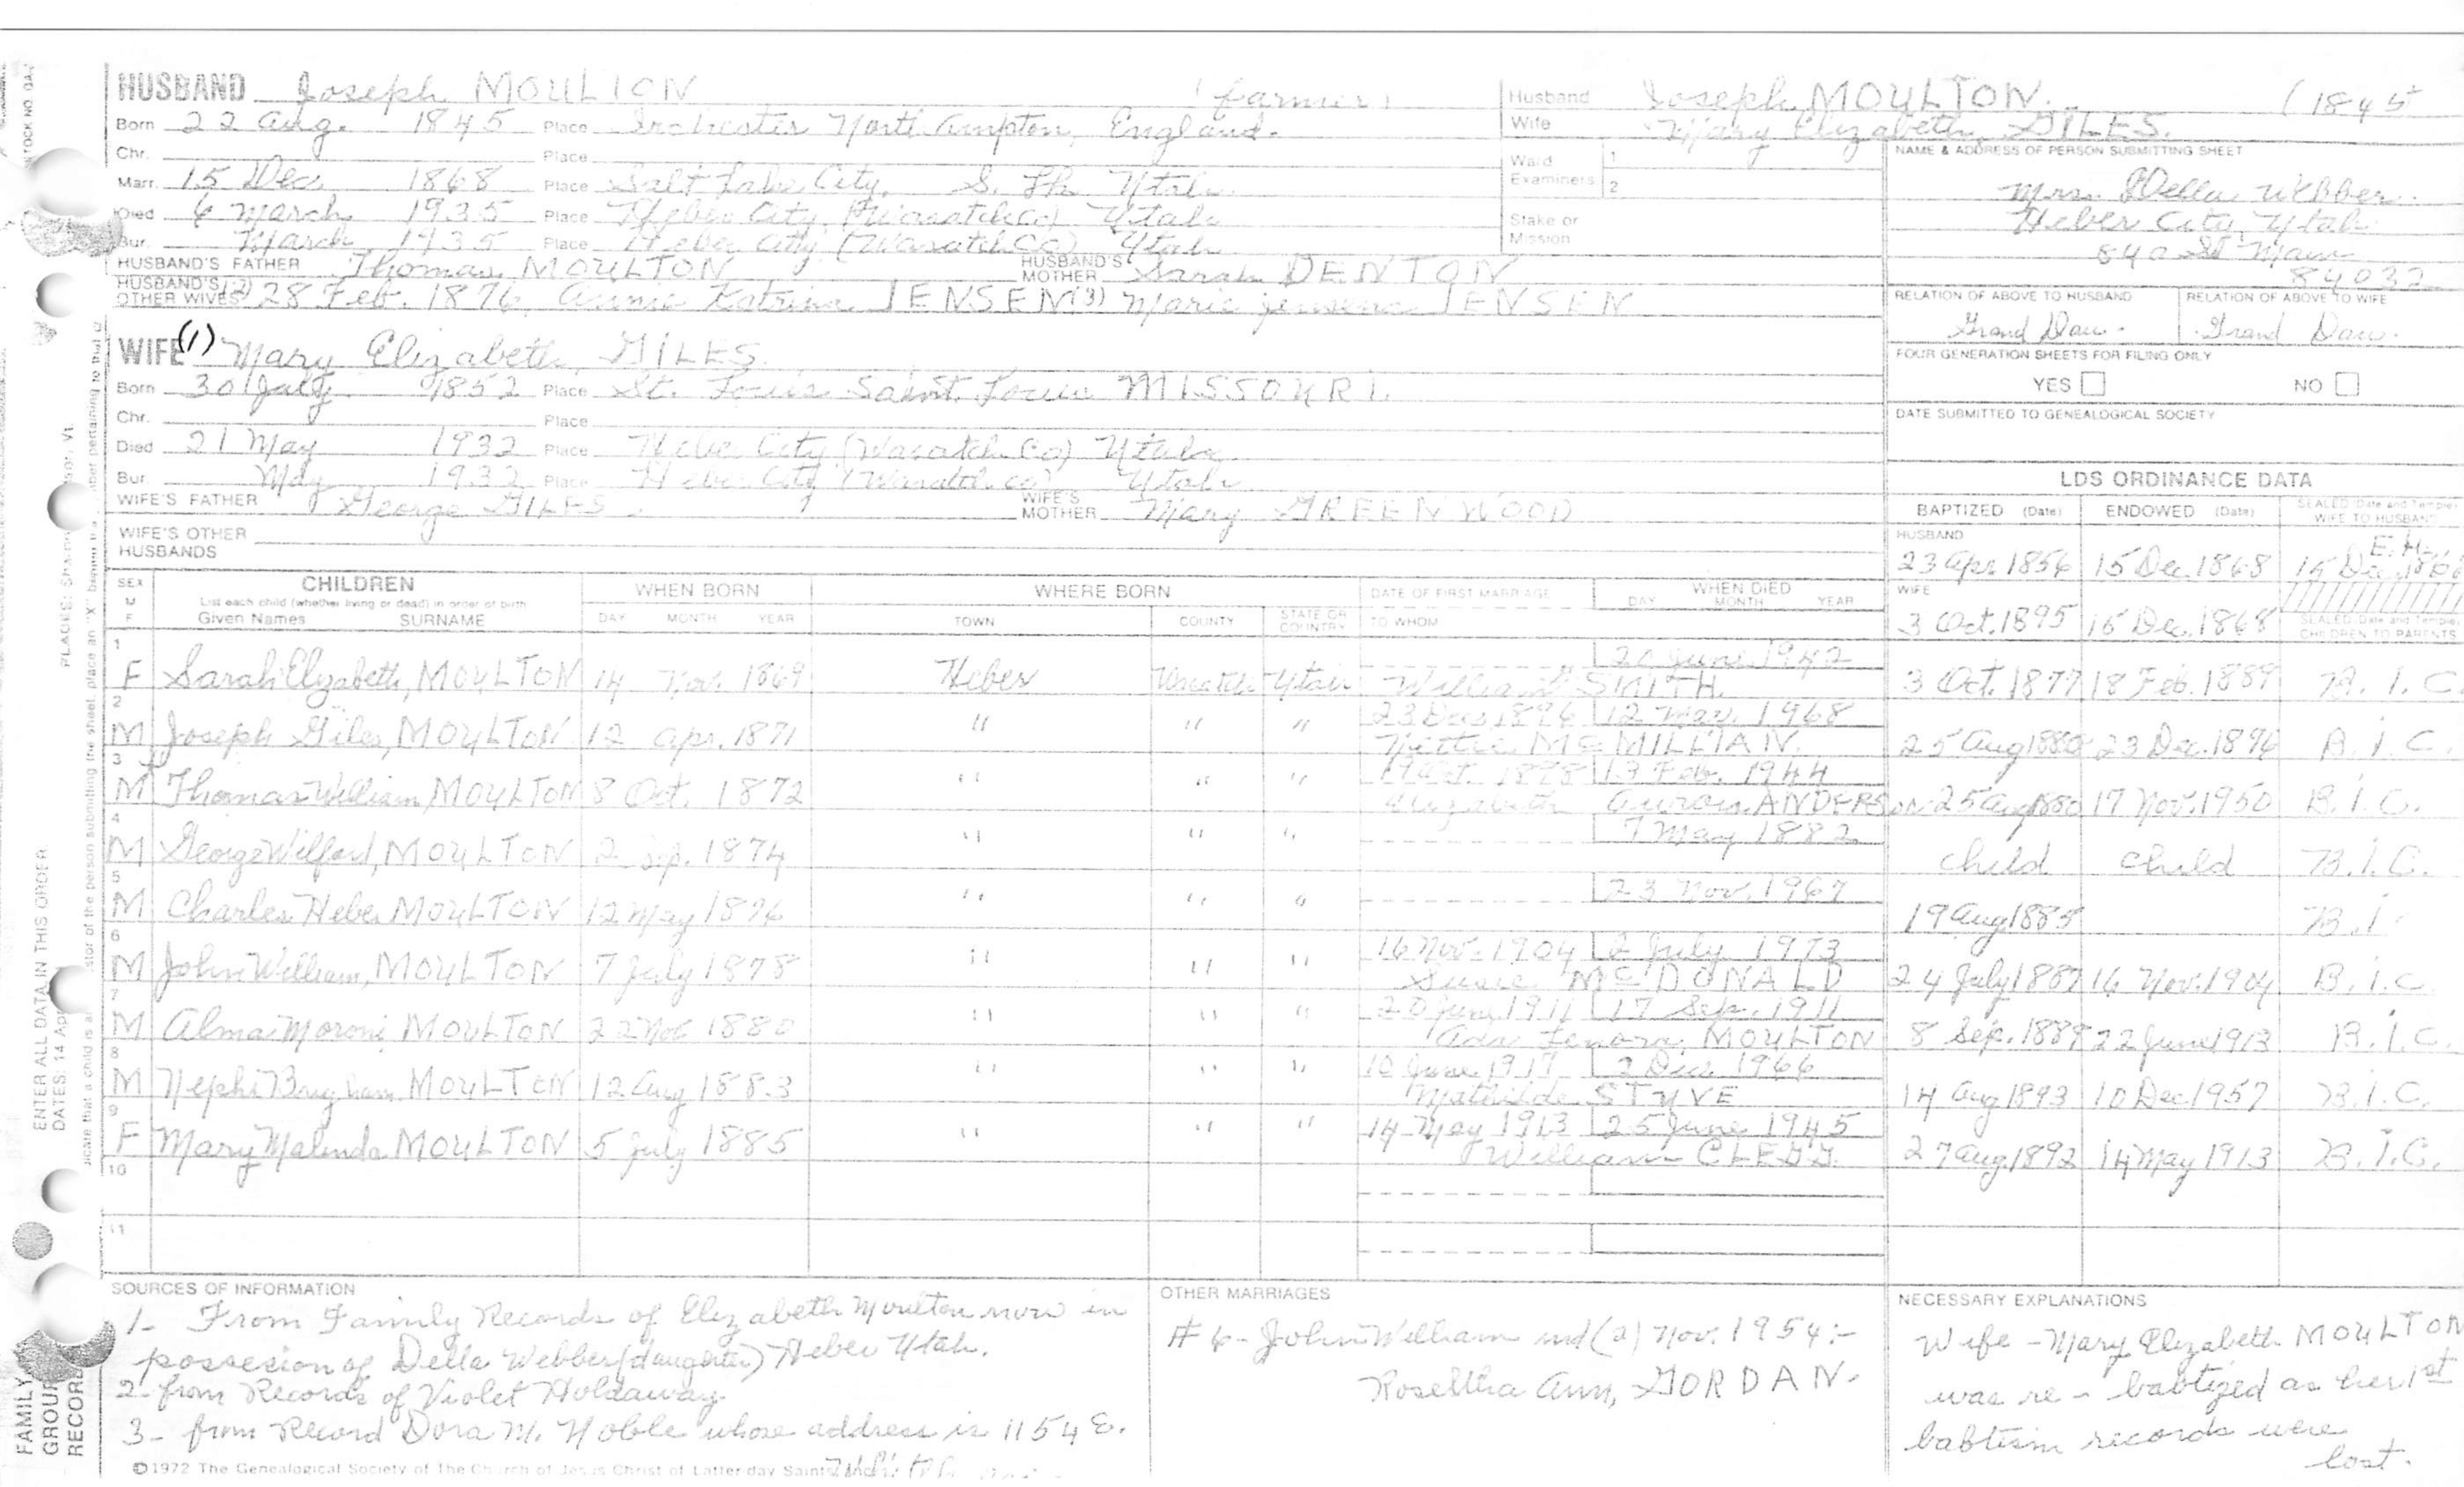 HUSBAND Joseph MOULTON (farmer)
Born 22 Aug. 1845 Place Irchester North Ampton, England.
Chr. Place
Marr. 15 Dec. 1868 Place Salt Lake City, S. Lk Utah
Died 6 March 1935 Place Heber City, (Wasatch Co) Utah
Bur. March 1935 Place Heber City (Wasatch Co) Utah
HUSBAND'S FATHER Thomas MOULTON HUSBAND'S MOTHER Sarah DENTON
HUSBAND'S OTHER WIVES (2) 28 Feb. 1876, Annie Katrina JENSEN (3) Marie JENSEN
WIFE (1) Mary Elizabeth GILES
Born 30 July 1852 Place St. Louis Saint Louis MISSOURI.
Chr. Place
Died 21 May 1932 Place Heber City (Wasatch Co) Utah
Bur. May 1932 Place Heber City (Wasatch co) Utah
WIFE'S FATHER George GILES WIFE'S MOTHER Mary GREENWOOD
WIFE'S OTHER HUSBANDS
Husband Joseph MOULTON. (1845
Wife Mary Elizabeth GILES.
Ward Examiners 1 2
Stake or Mission
NAME & ADDRESS OF PERSON SUBMITTING SHEET
Mrs. Della Webber
Heber City, Utah
84032
RELATION OF ABOVE TO HUSBAND RELATION OF ABOVE TO WIFE
Grand Dau. Grand Dau.
FOUR GENERATION SHEETS FOR FILING ONLY
YES NO
DATE SUBMITTED TO GENEALOGICAL SOCIETY
LDS ORDINANCE DATA
BAPTIZED (Date) ENDOWED (Date) SEALED (Date and Temple) WIFE TO HUSBAND
HUSBAND
23 Apr 1856 15 Dec. 1868 15 Dec. E.H.
WIFE
3 Oct. 1895 15 Dec. 1868 SEALED (Date and Temple) CHILDREN TO PARENTS
SEX M F CHILDREN WHEN BORN WHERE BORN DATE OF FIRST MARRIAGE WHEN DIED
List each child (whether living or dead) in order of birth
Given Names SURNAME DAY MONTH YEAR TOWN COUNTY STATE OR COUNTRY TO WHOM DAY MONTH YEAR
1 F Sarah Elizabeth, MOULTON 14 Nov. 1869 Heber Wasatch Utah June 1942
William SMITH. 3 Oct. 1877 18 Feb. 1889 B.I.C.
2 M Joseph Giles, MOULTON 12 Apr. 1871 " " " 23 Dec 1896 12 Mar. 1968
Nettie McMILLIAN. 25 Aug 1880 23 Dec. 1896 B.I.C.
3 M Thomas William MOULTON 8 Oct. 1872 " " " 13 Feb. 1944
Elizabeth Aurora ANDERSON 25 Aug 1880 17 Nov. 1950 B.I.C.
4 M George Wilford, MOULTON 2 Sep. 1874 " " " 7 May 1882
child child B.I.C.
5 M Charles Heber MOULTON 12 May 1876 " " " 23 Nov. 1967
19 Aug 1885 B.I.
6 M John William, MOULTON 7 July 1878 " " " 16 Nov. 1904 2 July 1973
Susie McDONALD 24 July 1887 16 Nov. 1904 B.I.C.
7 M Alma Moroni MOULTON 22 Nov 1880 " " " 20 June 1911 17 Sep. 1911
Ada Lenora, MOULTON 8 Sep. 1889 22 June 1913 B.I.C.
8 M Nephi Brigham MOULTON 12 Aug 1883 " " " 10 June 1917 2 Dec 1966
Mathilde STYVE 14 Aug 1893 10 Dec 1957 B.I.C.
9 F Mary Malinda MOULTON 5 July 1885 " " " 14 May 1913 25 June 1945
William CLEGG. 27 Aug 1892 14 May 1913 B.I.C.
10
11
SOURCES OF INFORMATION
1- From Family Records of Elizabeth Moulton now in
possesion of Della Webber (daughter) Heber Utah.
2- from Records of Violet Holdaway
3- from Record Dora M. Noble whose address is 1154 E.
OTHER MARRIAGES
#6- John William md (2) Nov. 1954:-
Roseltha Ann, GORDAN.
NECESSARY EXPLANATIONS
Wife - Mary Elizabeth MOULTON
was re-babtized as her 1st
babtism records were
lost.
©1972 The Genealogical Society of The Church of Jesus Christ of Latter-day Saints
FAMILY GROUP RECORD
ENTER ALL DATA IN THIS ORDER